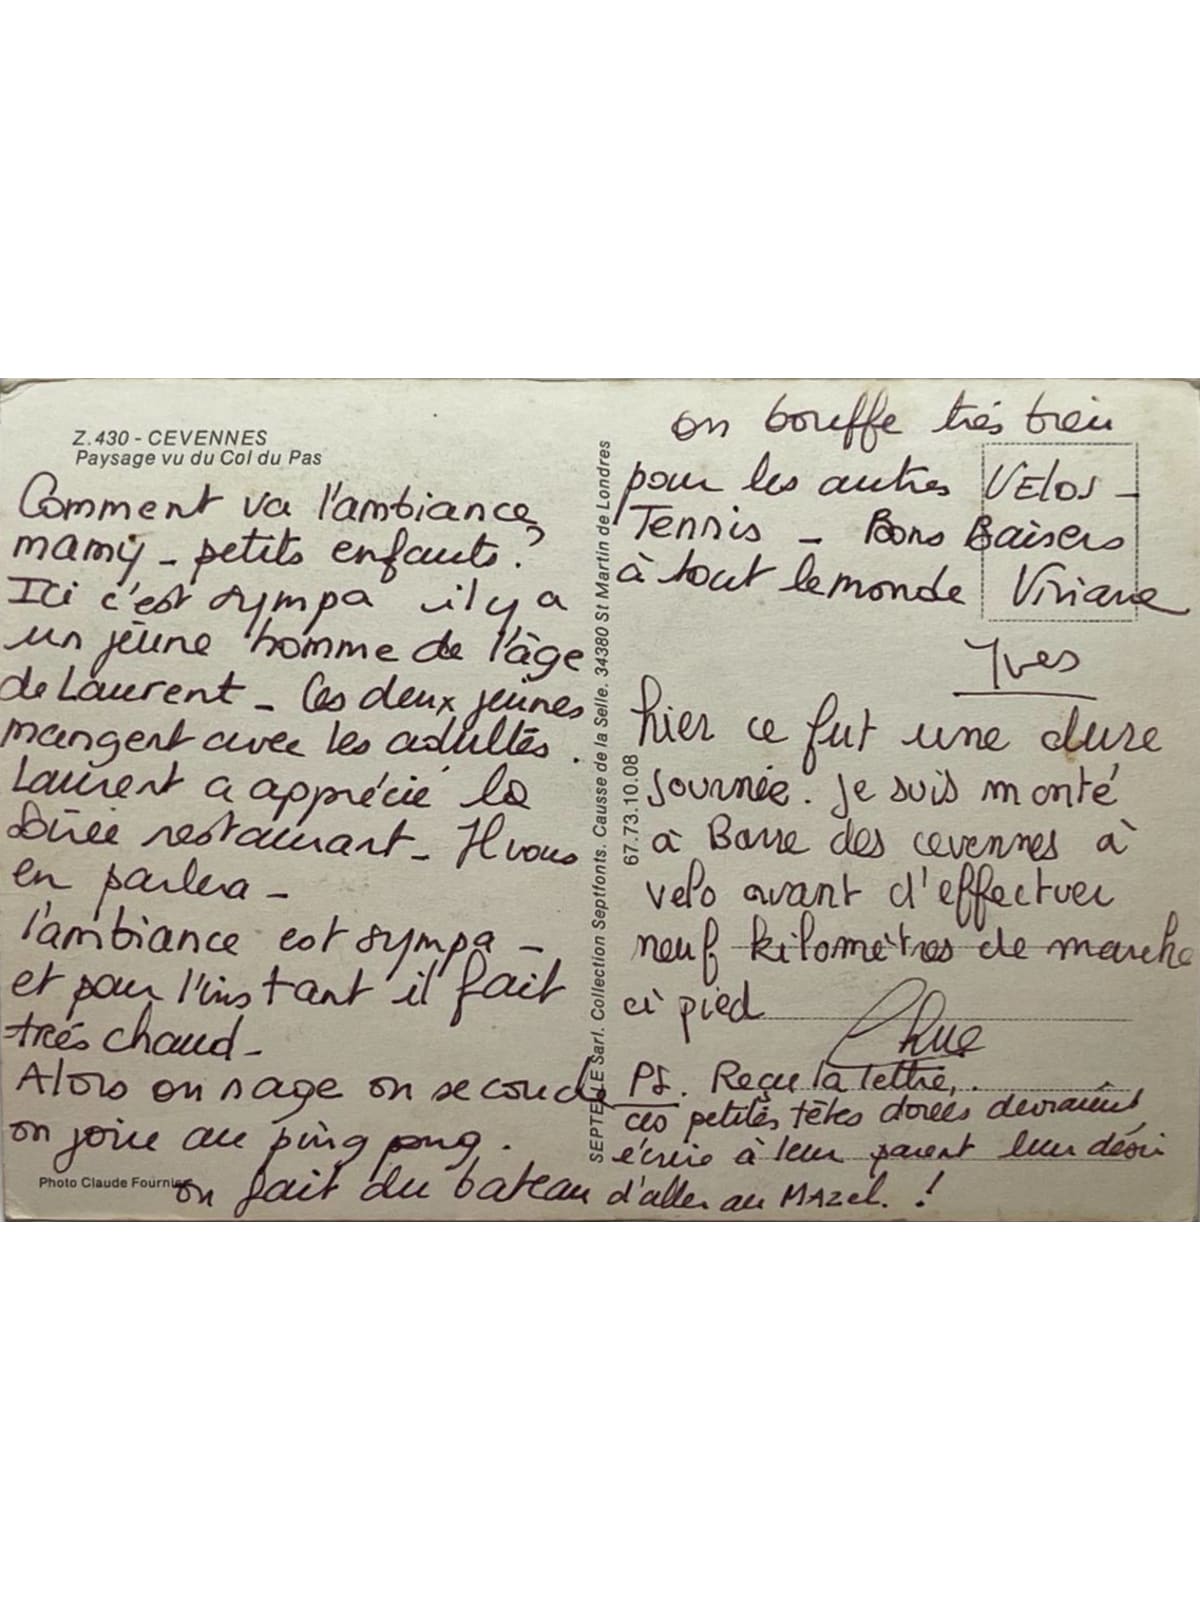 Z.430 - CEVENNES
Paysage vu du Col du Pas
Comment va l'ambiance
mamy - petits enfants ?
Ici c'est sympa il y a
un jeune homme de l'âge
de Laurent - Ces deux jeunes
mangent avec les adultes .
Laurent a apprécié la
Soirée restaurant - Il vous
en parlera -
l'ambiance est sympa -
et pour l'instant il fait
trés chaud -
Alors on nage on se couche
on joue au ping pong .
on fait du bateau
Photo Claude Fournier
SEPTELLE Sarl. Collection Septfonts. Causse de la Selle. 34380 St Martin de Londres
67.73.10.08
on bouffe trés bien
pour les autres VELOS -
Tennis - Bons Baisers
à tout le monde Viviane
Yves
hier ce fut une dure
journée . je suis monté
à Barre des cevennes à
velo avant d'effectuer
neuf kilomètres de marche
à pied
PS . Reçu la lettre .
ces petites têtes dorées devraient
écrire à leur parent leur désir
d'aller au MAZel . !